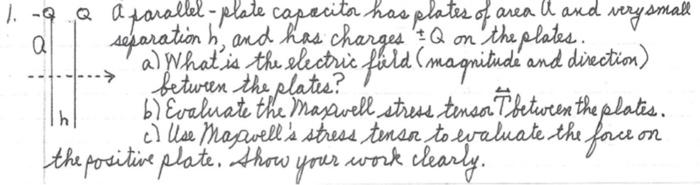 1. -Q Q A parallel-plate capacitor has plates of area a and very small
a separation h, and has charges ±Q on the plates.
a) What is the electric field (magnitude and direction)
between the plates?
b) Evaluate the Maxwell stress tensor T between the plates.
h c) Use Maxwell's stress tensor to evaluate the force on
the positive plate. Show your work clearly.